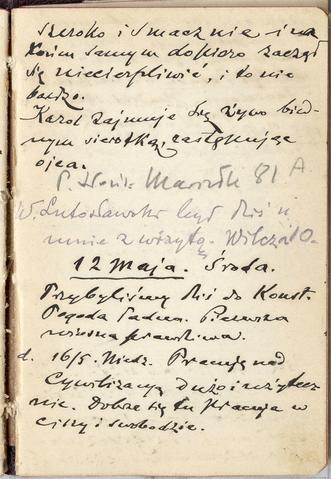 szeroko i smacznie i na
końcu samym dopiero zaczął
się niecierpliwić, i to nie
bardzo.
Karol zajmuje się żywo bied-
nym sierotką, zastępując
ojca.
81 A
W. Lutosławski był dziś u
mnie z wizytą. Wilcza
12 Maja. Środa.
Przybyliśmy dziś do Konst.
Pogoda ładna. Pierwsza
wiosna prawdziwa.
d. 16/5. Niedz. Pracuję nad
Cywilizacją dużo i użytecz-
nie. Dobrze się tu pracuje w
ciszy i swobodzie.